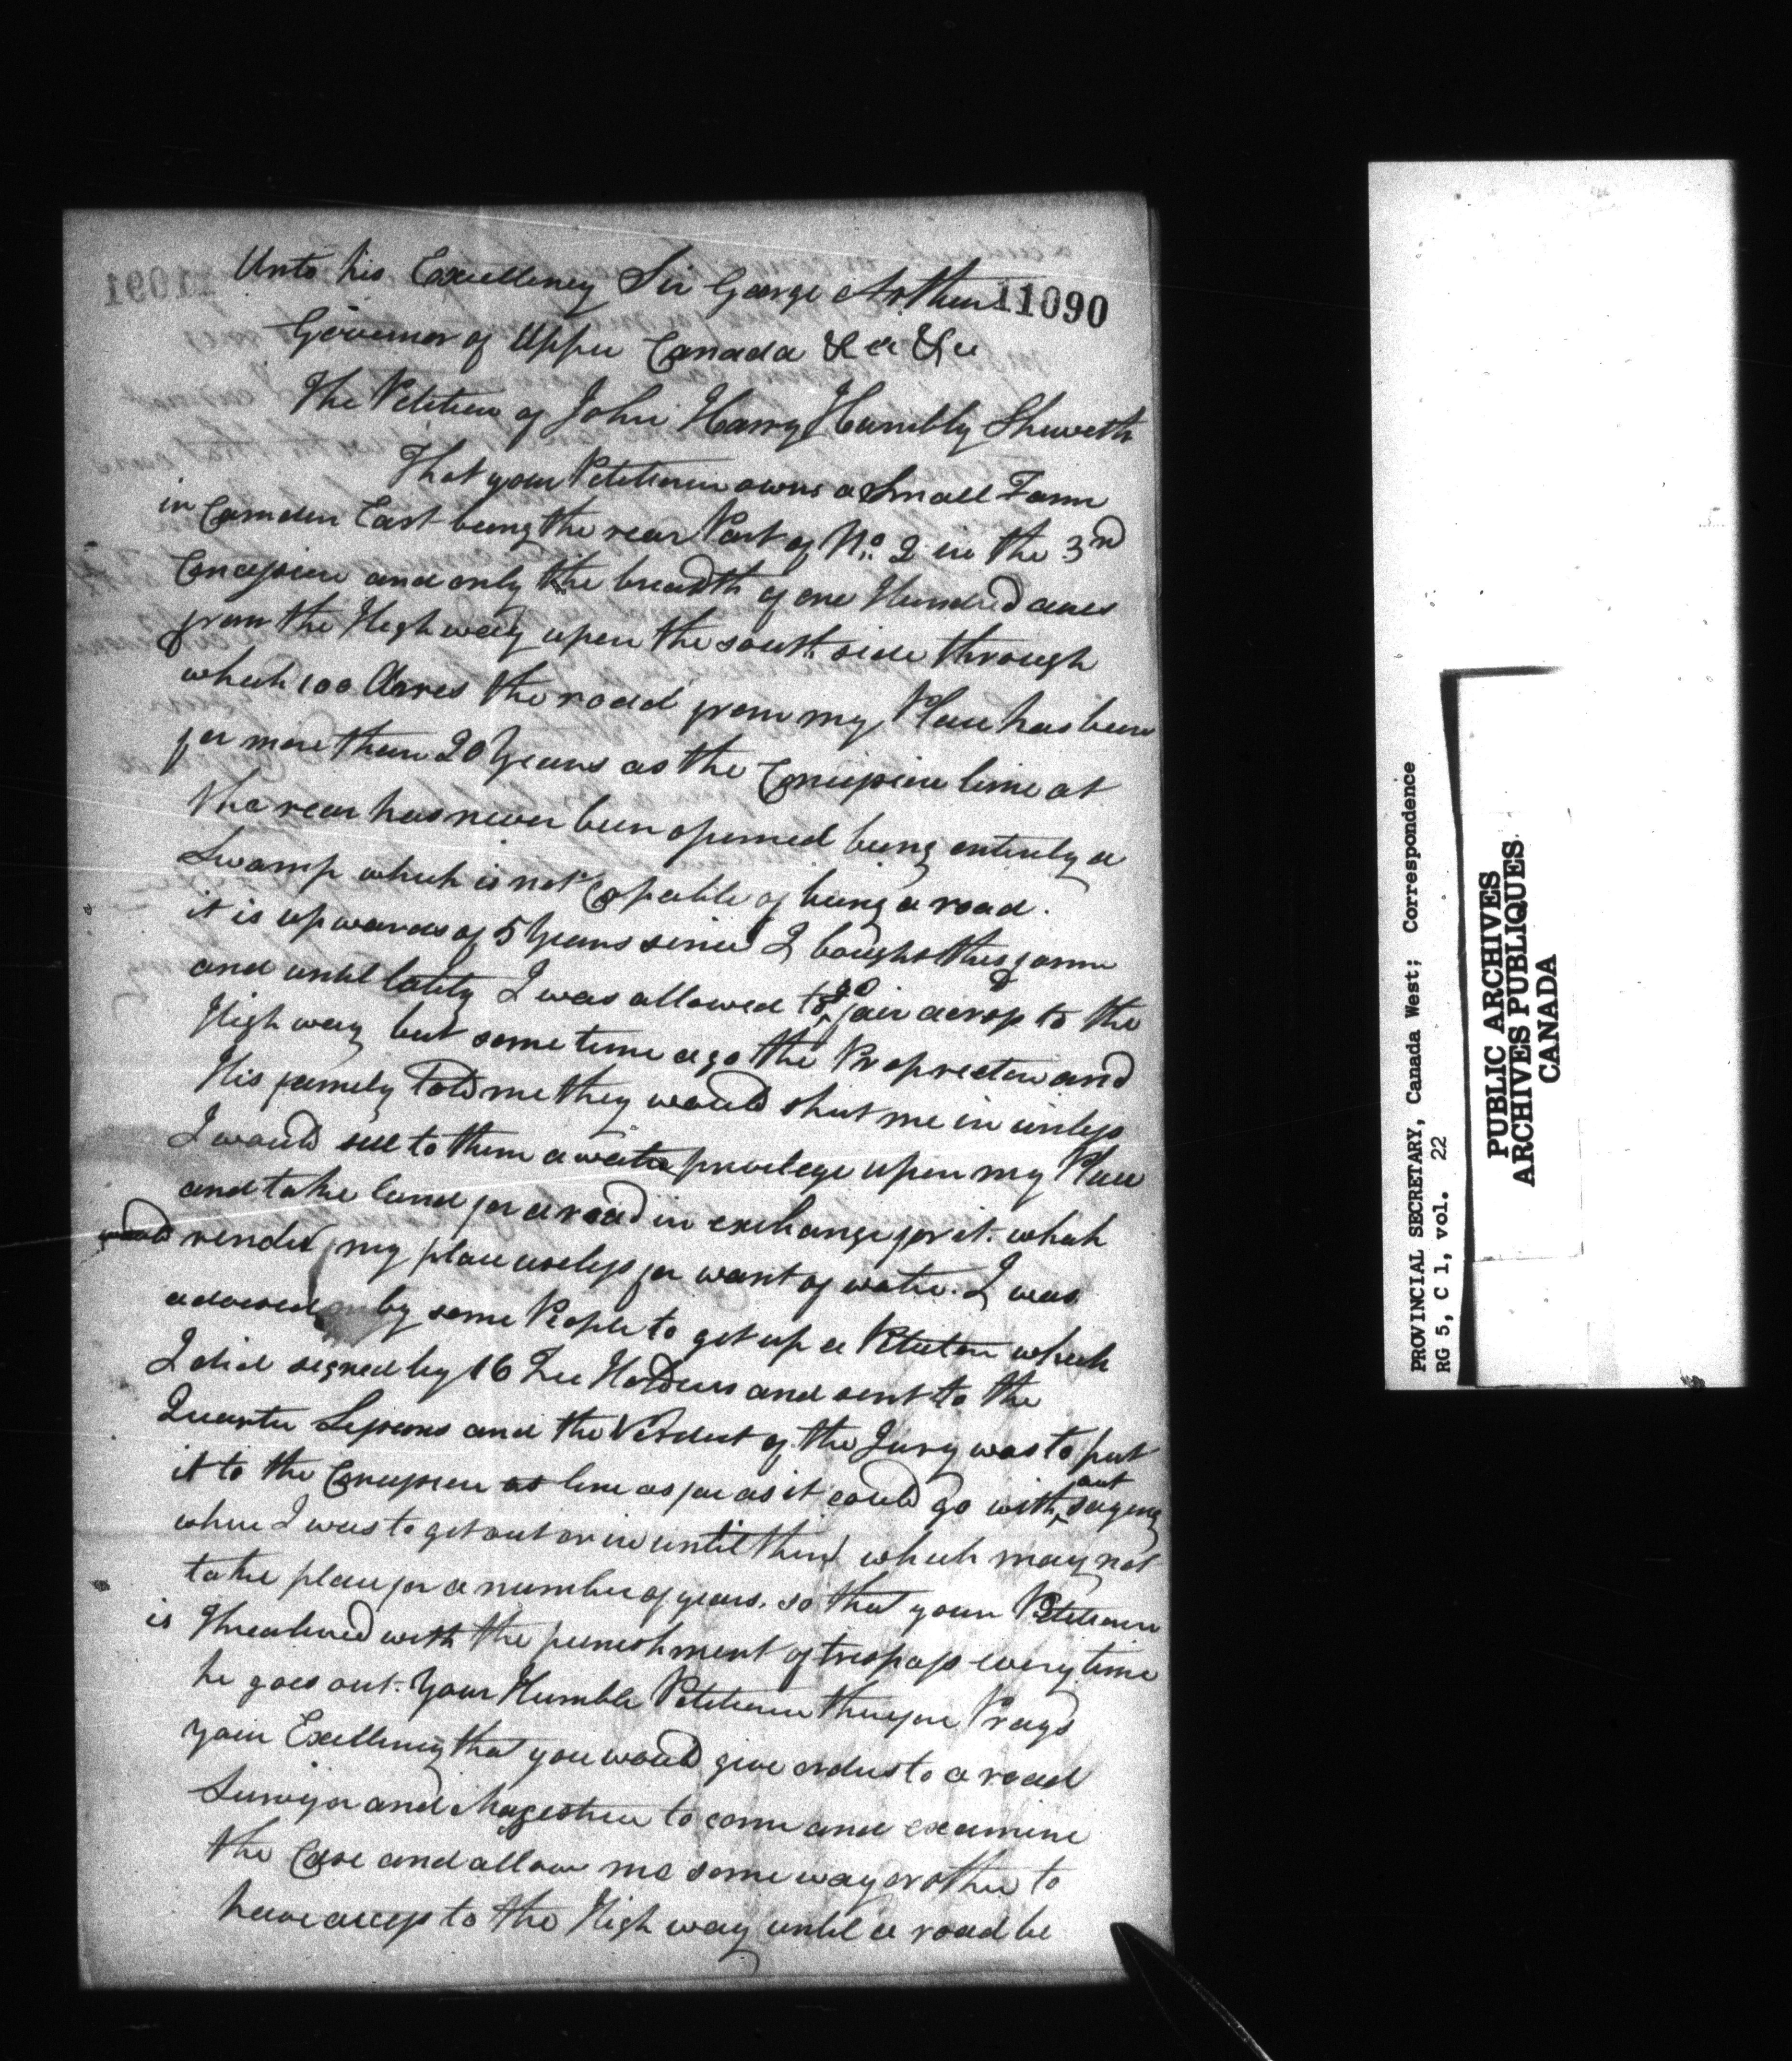 Unto his Excellency Sir George Arthur
11090
Governor of Upper Canada &c &c
The Petition of John Harry Humbly Sheweth
That your Petitioner owns a Small Farm
in Camden East being the rear Part of No. 2 in the 3rd
Concession and only the breadth of one Hundred acres
from the High way upon the south side through
which 100 Acres the road from my Place has been
for more than 20 Years as the Concession line at
the rear has never been opened being entirely a
Swamp which is not Capable of being a road.
it is upwards of 5 Years since I bought this farm
and until lately I was allowed to go across to the
High way but some time ago the Proprietor and
His family Told me they would shut me in unless
I would sell to them a water privilege upon my Place
and take land for a road in exchange for it. which
would render my place useless for want of water. I was
advised by some People to get up a Petition which
I did signed by 16 Free Holders and sent to the
Quarter Sessions and the Verdict of the Jury was to put
it to the Concession line as far as it could go without saying
where I was to get out or in until then which may not
take place for a number of years. so that your Petitioner
is Threatened with the punishment of trespass every time
he goes out. Your Humble Petitioner therefore Prays
your Excellency that you would give orders to a road
Surveyor and Magistrate to come and examine
the Case and allow me some way or other to
have access to the High way until a road be
11091
PROVINCIAL SECRETARY, Canada West; Correspondence
RG 5, C 1, vol. 22
PUBLIC ARCHIVES
ARCHIVES PUBLIQUES
CANADA